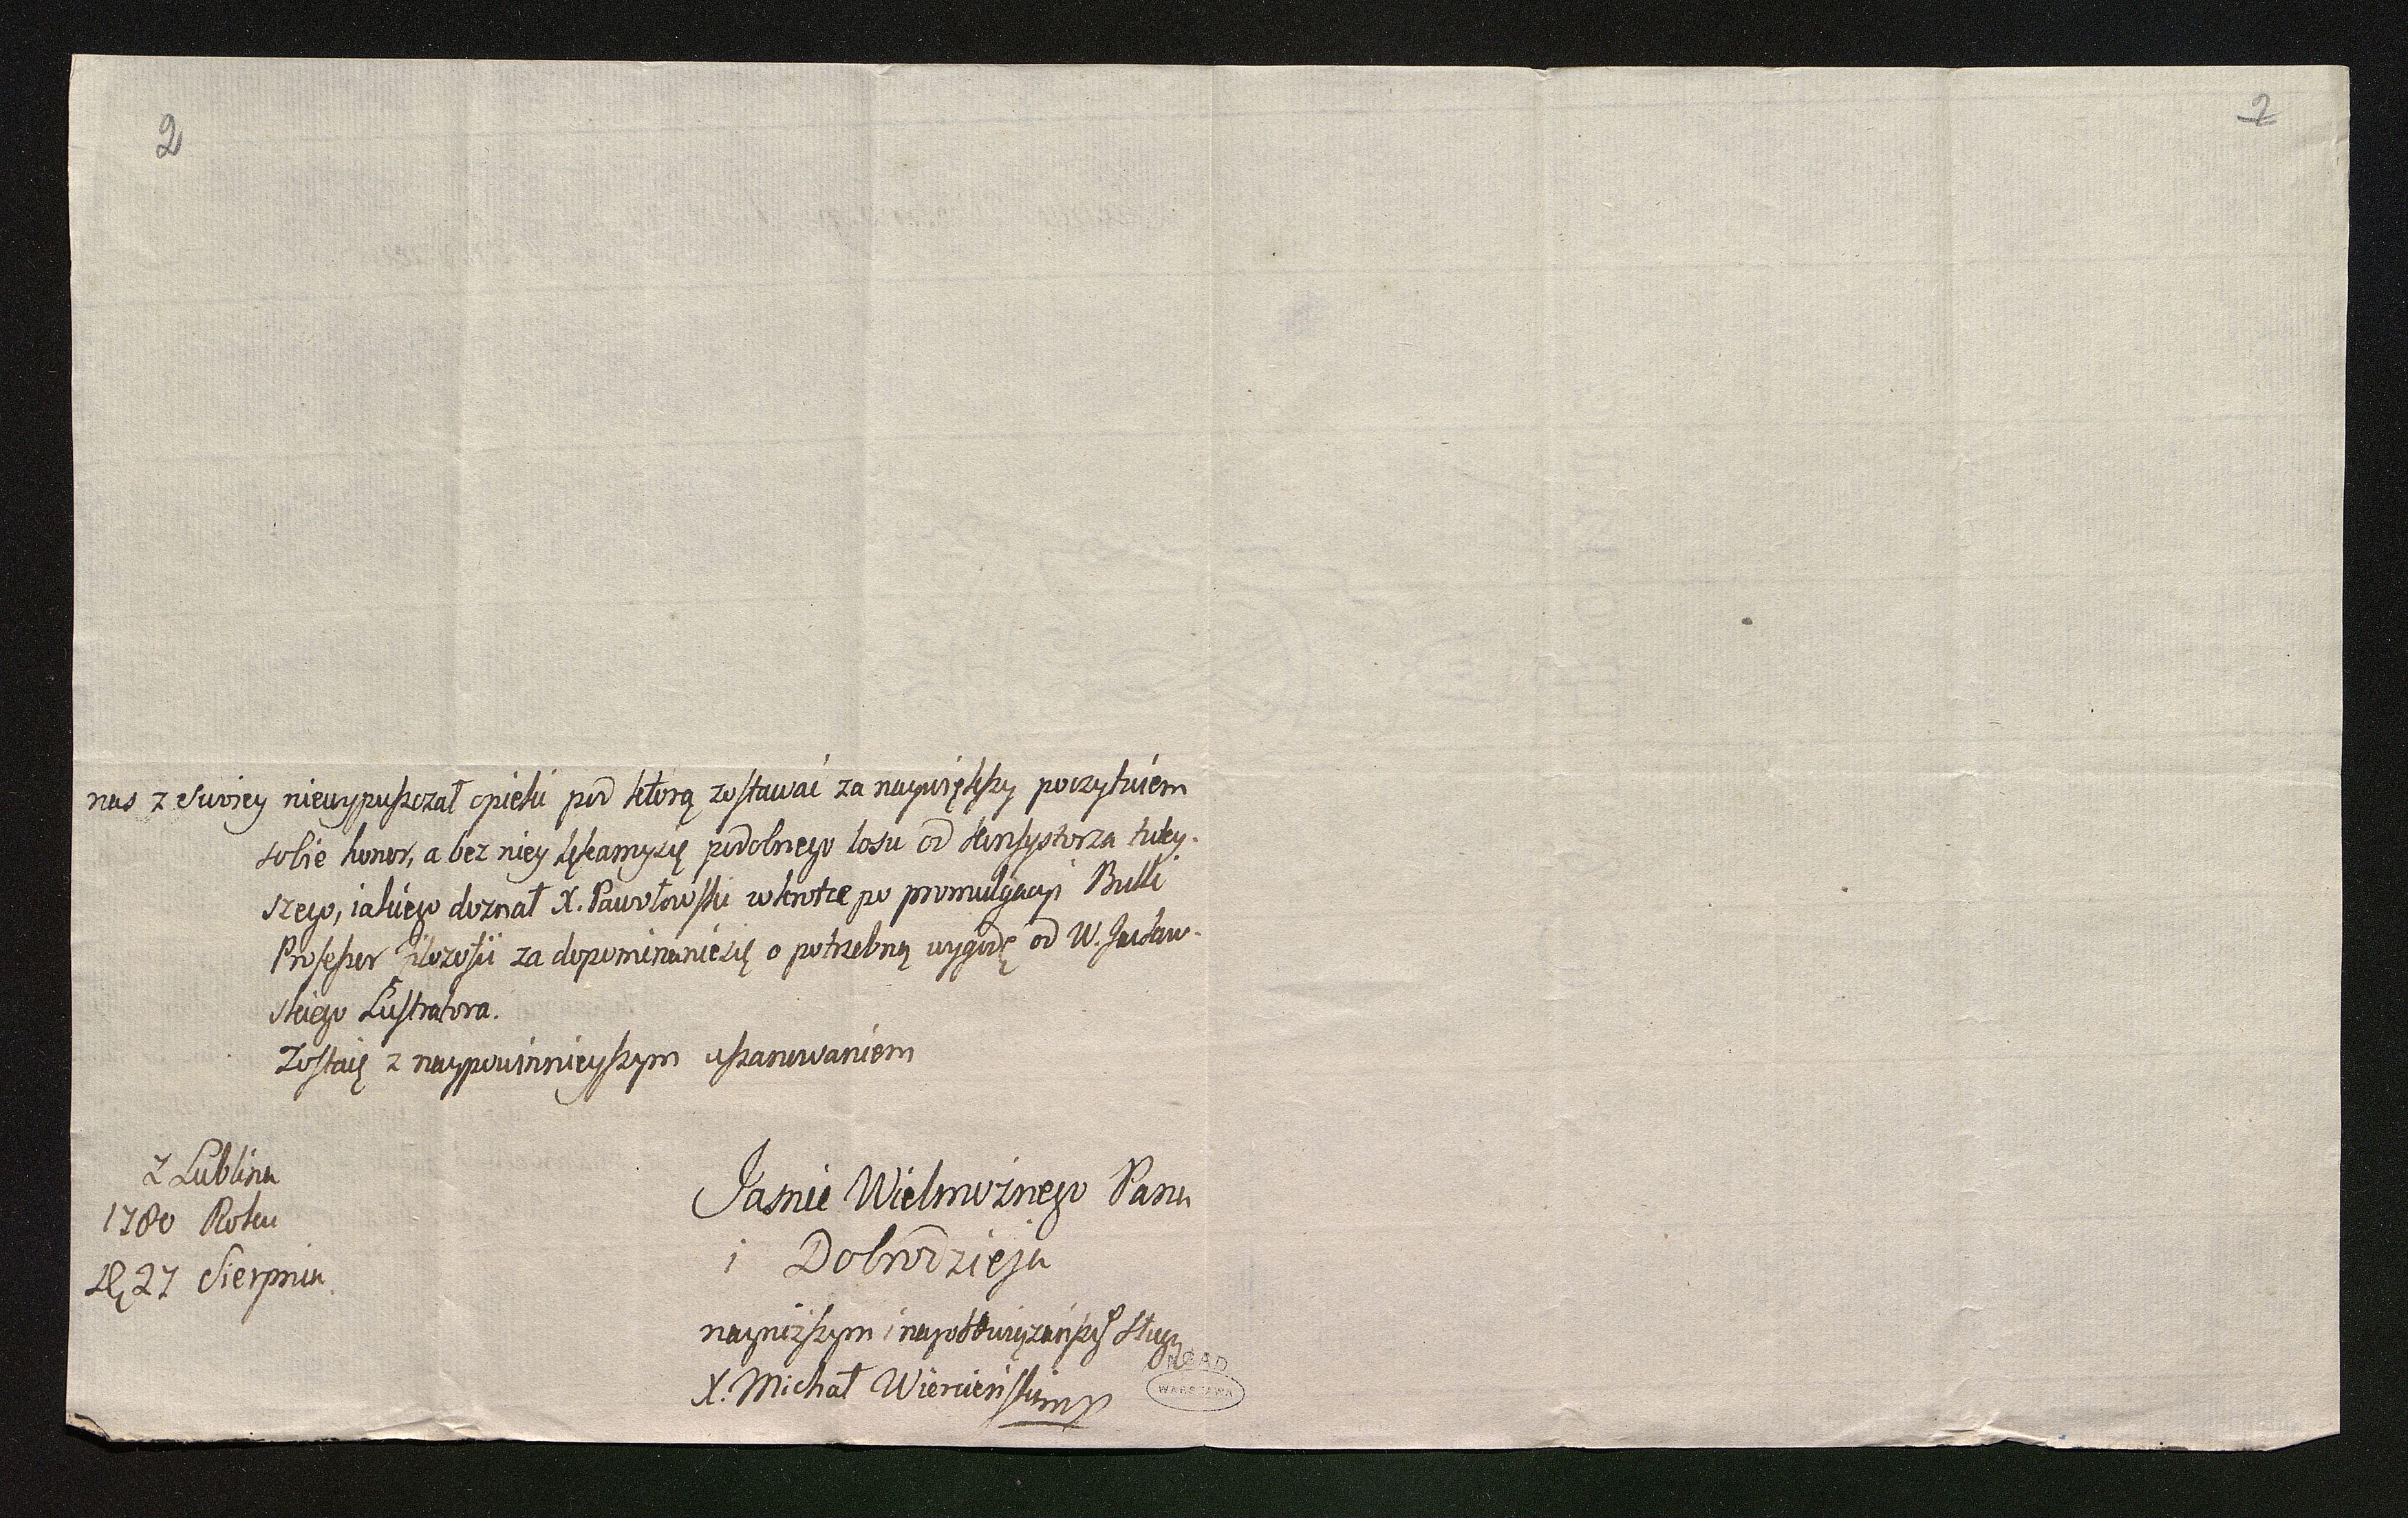 2
2
nas z swoiey niewypuszczał opieki pod którą zostawać za naywiększy poczytuiem
sobie honor, a bez niey lękamysię podobnego losu od Konsystorza tutey-
szego, iakiego doznał X. Pawłowski wkrotce po promulgacyi Bulli
Professor Filozofii za dopominaniesię o potrzebną wygodę od W.
skiego Lustratora.
Zostaię z naypowinnieyszym uszanowaniem
Z Lublina
1780 Roku
D. 27 Sierpnia
Jasnie Wielmożnego Pana
i Dobrodzieja
nayniższym i nayobowiązańszym sługą
X. Michał Wiercieński mp
AGAD
WARSZAWA